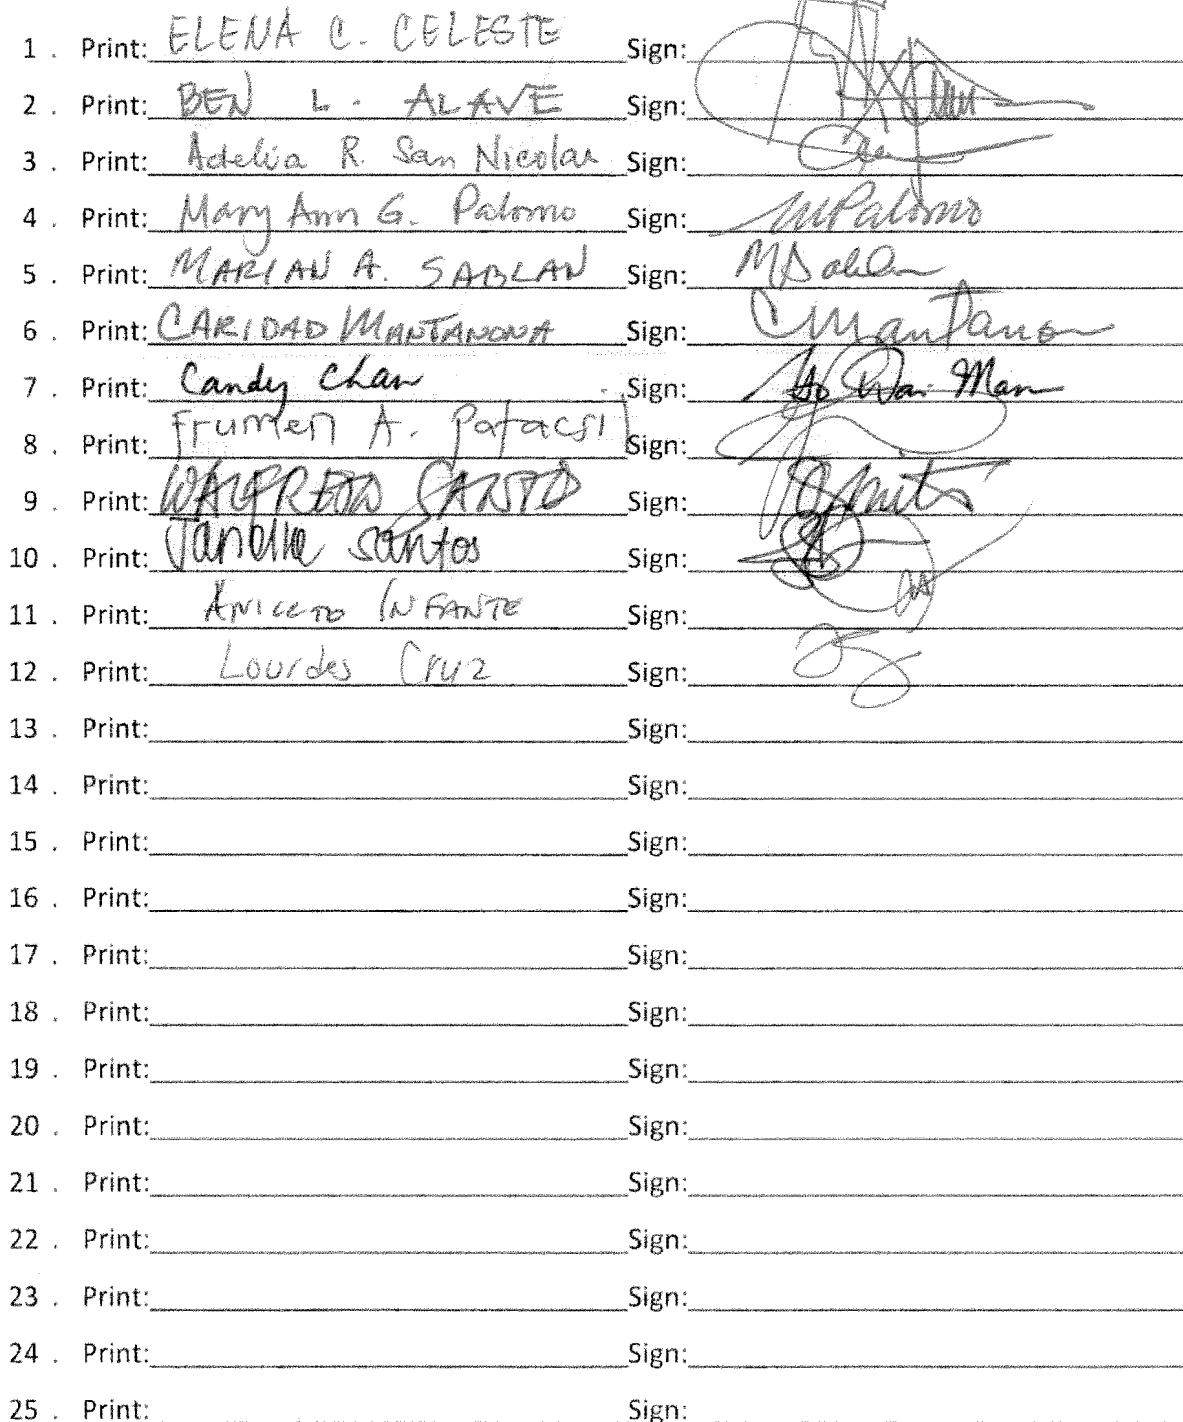 1 . Print: ELENA C. CELESTE Sign:
2 . Print: BEN L. ALAVE Sign:
3 . Print: Adelia R. San Nicolas Sign:
4 . Print: Mary Ann G. Palomo Sign: MPalomo
5 . Print: MARIAN A. SABLAN Sign:
6 . Print: CARIDAD MANTANONA Sign:
7 . Print: Candy Chan Sign: Wai Man
8 . Print: Frumen A. Patacsil Sign:
9 . Print: WALFREDO SANTO Sign:
10 . Print: Janelle Santos Sign:
11 . Print: ANICETO INFANTE Sign:
12 . Print: Lourdes Cruz Sign:
13 . Print: Sign:
14 . Print: Sign:
15 . Print: Sign:
16 . Print: Sign:
17 . Print: Sign:
18 . Print: Sign:
19 . Print: Sign:
20 . Print: Sign:
21 . Print: Sign:
22 . Print: Sign:
23 . Print: Sign:
24 . Print: Sign:
25 . Print: Sign: